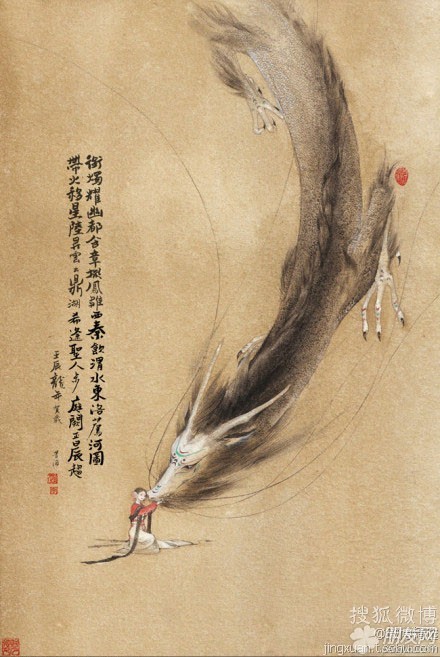 銜燭耀幽都含章擬鳳雛西秦飲渭水東洛薦河圖
帶火移星陸昇雲出鼎湖希逢聖人步庭闕正晨趨
壬辰龍年賀歲
搜狐微博
朋友网
jingxuan.t.